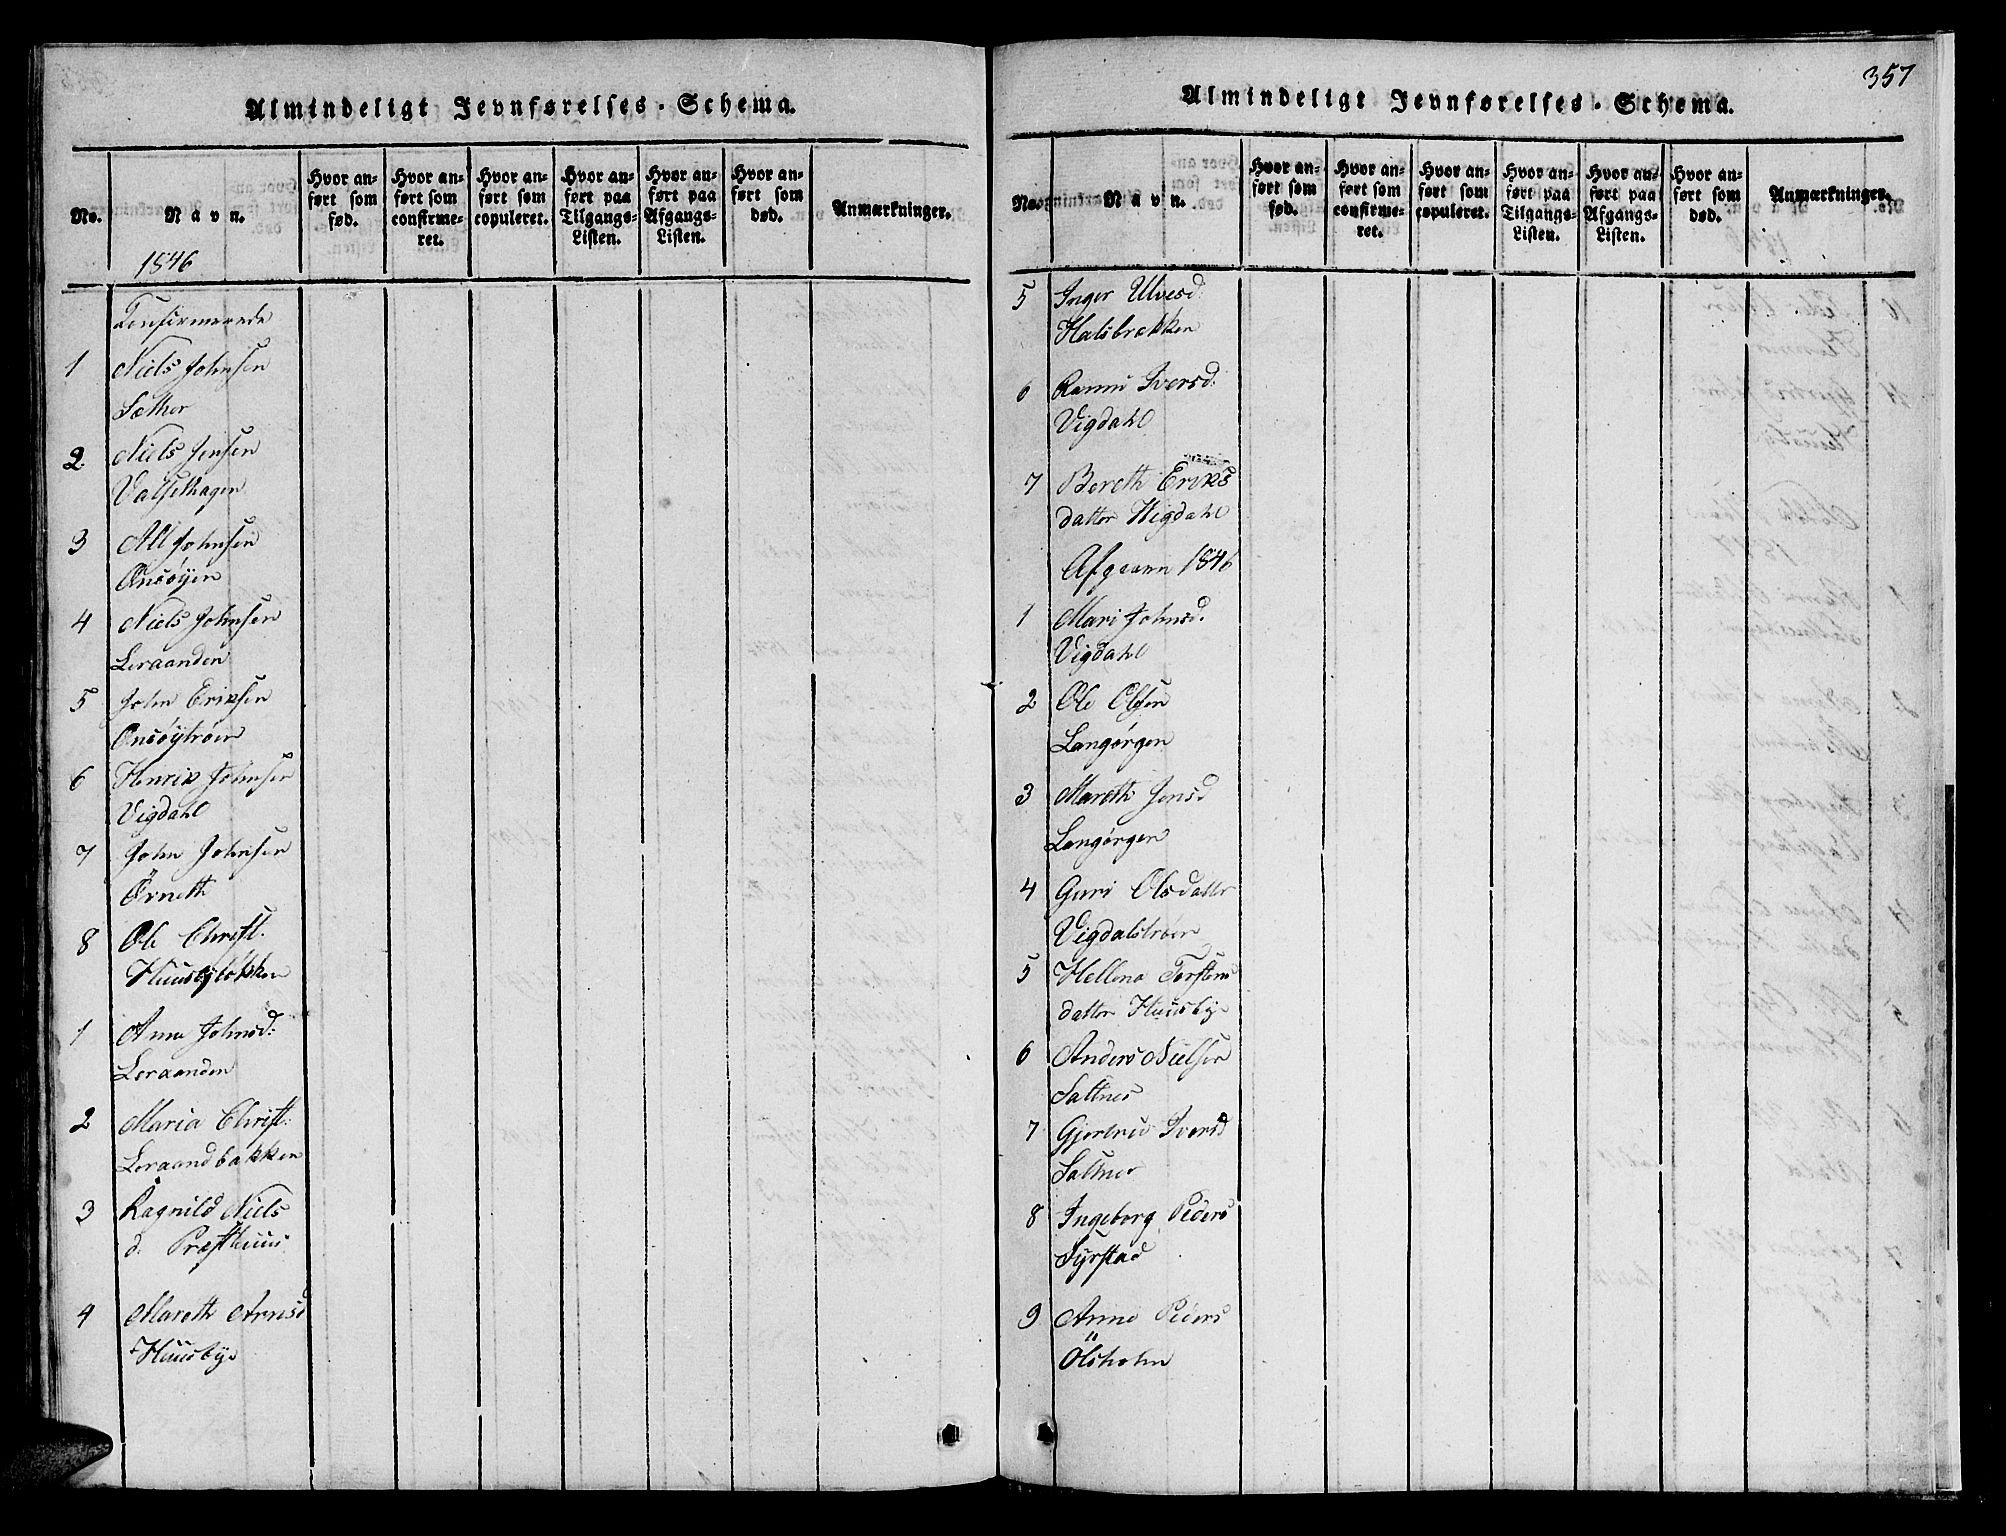 Almindeligt Jevnførelses-Schema.
No.
Navn.
Hvor an-
ført som
fød.
Hvor an-
ført som
confirme-
ret.
Hvor an-
ført som
copuleret.
Hvor an-
ført paa
Tilgangs-
Listen.
Hvor an-
ført paa
Afgangs-
Listen.
Hvor an-
ført som
død.
Anmærkninger.
1846
Konfirmerede
1 Niels Johnsen
Sæther
2. Niels Jensen
Valselhagen
3 Johnsen
Onsøyen
4 Niels Johnsen
Leraanden
5 John Eriksen
Onsøytrøen
6 Henrik Johnsen
Vigdahl
7 John Johnsen
8 Ole Christ.
Huusbyløkken
1 Anne Johnsd:
Leraanden
2 Maria Christ:
Leraandbakken
3 Ragnild Niels
d. Præsthuus
4 Mareth Arnsd
Huusbye
357
Almindeligt Jevnførelses-Schema.
No.
Navn.
Hvor an-
ført som
fød.
Hvor an-
ført som
confirme-
ret.
Hvor an-
ført som
copuleret.
Hvor an-
ført paa
Tilgangs-
Listen.
Hvor an-
ført paa
Afgangs-
Listen.
Hvor an-
ført som
død.
Anmærkninger.
5 Inger Ulvesd.
Halsbrekken
6 Iversd:
Vigdahl
7 Bereth Eriks
datter Wigdahl
1846
1 Mari Johnsd.
Vigdahl
2 Ole Olsen
Langørgen
3 Mareth Jensd
Langørgen
4 Guri Olsdatter
Vigdalstrøen
5 Hellena Torstens
datter Huusbye
6 Anders Nielsen
Saltnes
7 Gjertrud Iversd
Saltnes
8 Ingeborg Peders
Syrstad
9 Anne Peders
Ölsholm